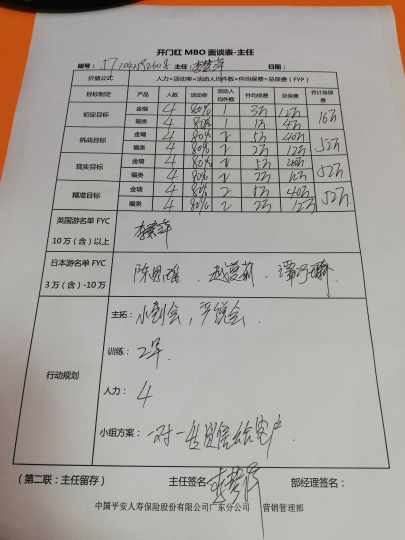 开门红 MBO 面谈表-主任
编号： 主任： 日期：
价值公式 人力×活动率×活动人均件数×件均保费=总保费（FYP）
目标制定 产品 人数 活动率 活动人均件数 件均保费 总保费 合计总保费
初定目标 金瑞 4 80% 3万 12万 16万
福类 4 80% 1 1万 4万
挑战目标 金瑞 4 80% 2 5万 40万 52万
福类 4 80% 2 2万 12万
现实目标 金瑞 4 80% 2 5万 40万 52万
福类 4 80% 2 2万 12万
精准目标 金瑞 4 80% 2 5万 40万 52万
福类 4 80% 2 2万 12万
英国游名单 FYC
10 万（含）以上
日本游名单 FYC
3 万（含）-10万
行动规划
主拓： 小创会，产说会.
训练： 2早.
人力： 4
小组方案： 一对一发短信给客户.
（第二联：主任留存） 主任签名： 部经理签名：
中国平安人寿保险股份有限公司广东分公司 营销管理部